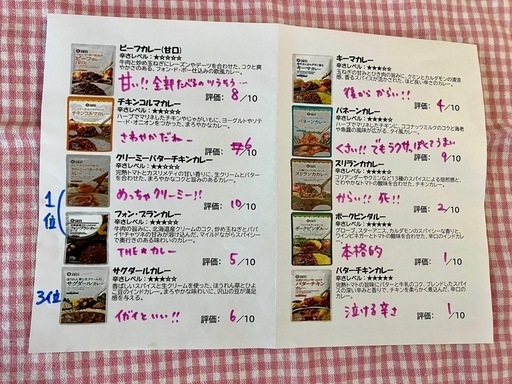 ビーフカレー(甘口)
辛さレベル:★☆☆☆☆
牛肉と炒め玉ねぎにレーズンやデーツを合わせた、コクと爽
やかさのある、フォン・ド・ボー仕込みの欧風カレー。
甘い!! 全部たべるのツラそう…
評価: 8/10
チキンコルマカレー
辛さレベル:★
ハーブでマリネしたチキンやじゃがいもに、ヨーグルトやソテ
ード・オニオンをつかった、まろやかなカレー。
さわやかだねー
評価: 6/10
クリーミーバターチキンカレー
辛さレベル:★
完熟トマトとカスリメティの甘い香りに、生クリームとバター
を合わせた、まろやかなコクと旨みのあるカレー。
めっちゃクリーミー!!
評価: 10/10
1位
フォン・ブランカレー
辛さレベル:★
牛肉の旨みに、北海道産クリームのコク、炒め玉ねぎとババ
ナやチャツネの甘みが溶け込んだ、マイルドながらスパイシー
で奥行きのある味わいのカレー。
THE★カレー
評価: 5/10
3位
サグダールカレー
辛さレベル:★
香ばしいスパイスと生クリームを使った、ほうれん草とひよ
こ豆のインドカレー。まろやかな味わいに、沢山の豆が満足
感を与える。
イガイといい!!
評価: 6/10
キーマカレー
辛さレベル:★
玉ねぎの甘みとひき肉の旨みに、クミンとカルダモンの清涼
感、香るスパイスが活かされた、ほど良い辛さのカレー。
後から からい!!
評価: 4/10
パネーンカレー
辛さレベル:★
ハーブでマリネしたチキンに、ココナッツミルクのコクと海老
や魚醤の風味が広がる、タイ風カレー。
くさい!! でもクセになってうまい
評価: 9/10
スリランカカレー
辛さレベル:★
コリアンダーやクミンなど13種のスパイスによる焙煎感と、
さわやかなトマトの酸味を合わせた、チキンカレー。
からい!! 死!!
評価: 2/10
ポークビンダルー
辛さレベル:★
グローブ、スターアニス、カルダモンのスパイシーな香りと、
ワインビネガーとトマトの酸味を合わせた、辛口のインドカレ
ー。
本格的
評価: 1/10
バターチキンカレー
辛さレベル:★★★★★
完熟トマトの旨味にバターと牛乳のコク、ブレンドしたスパイ
スの深い辛みと香りで、チキンを柔らかく煮込んだ、辛口の
カレー。
泣ける辛さ
評価: 1/10